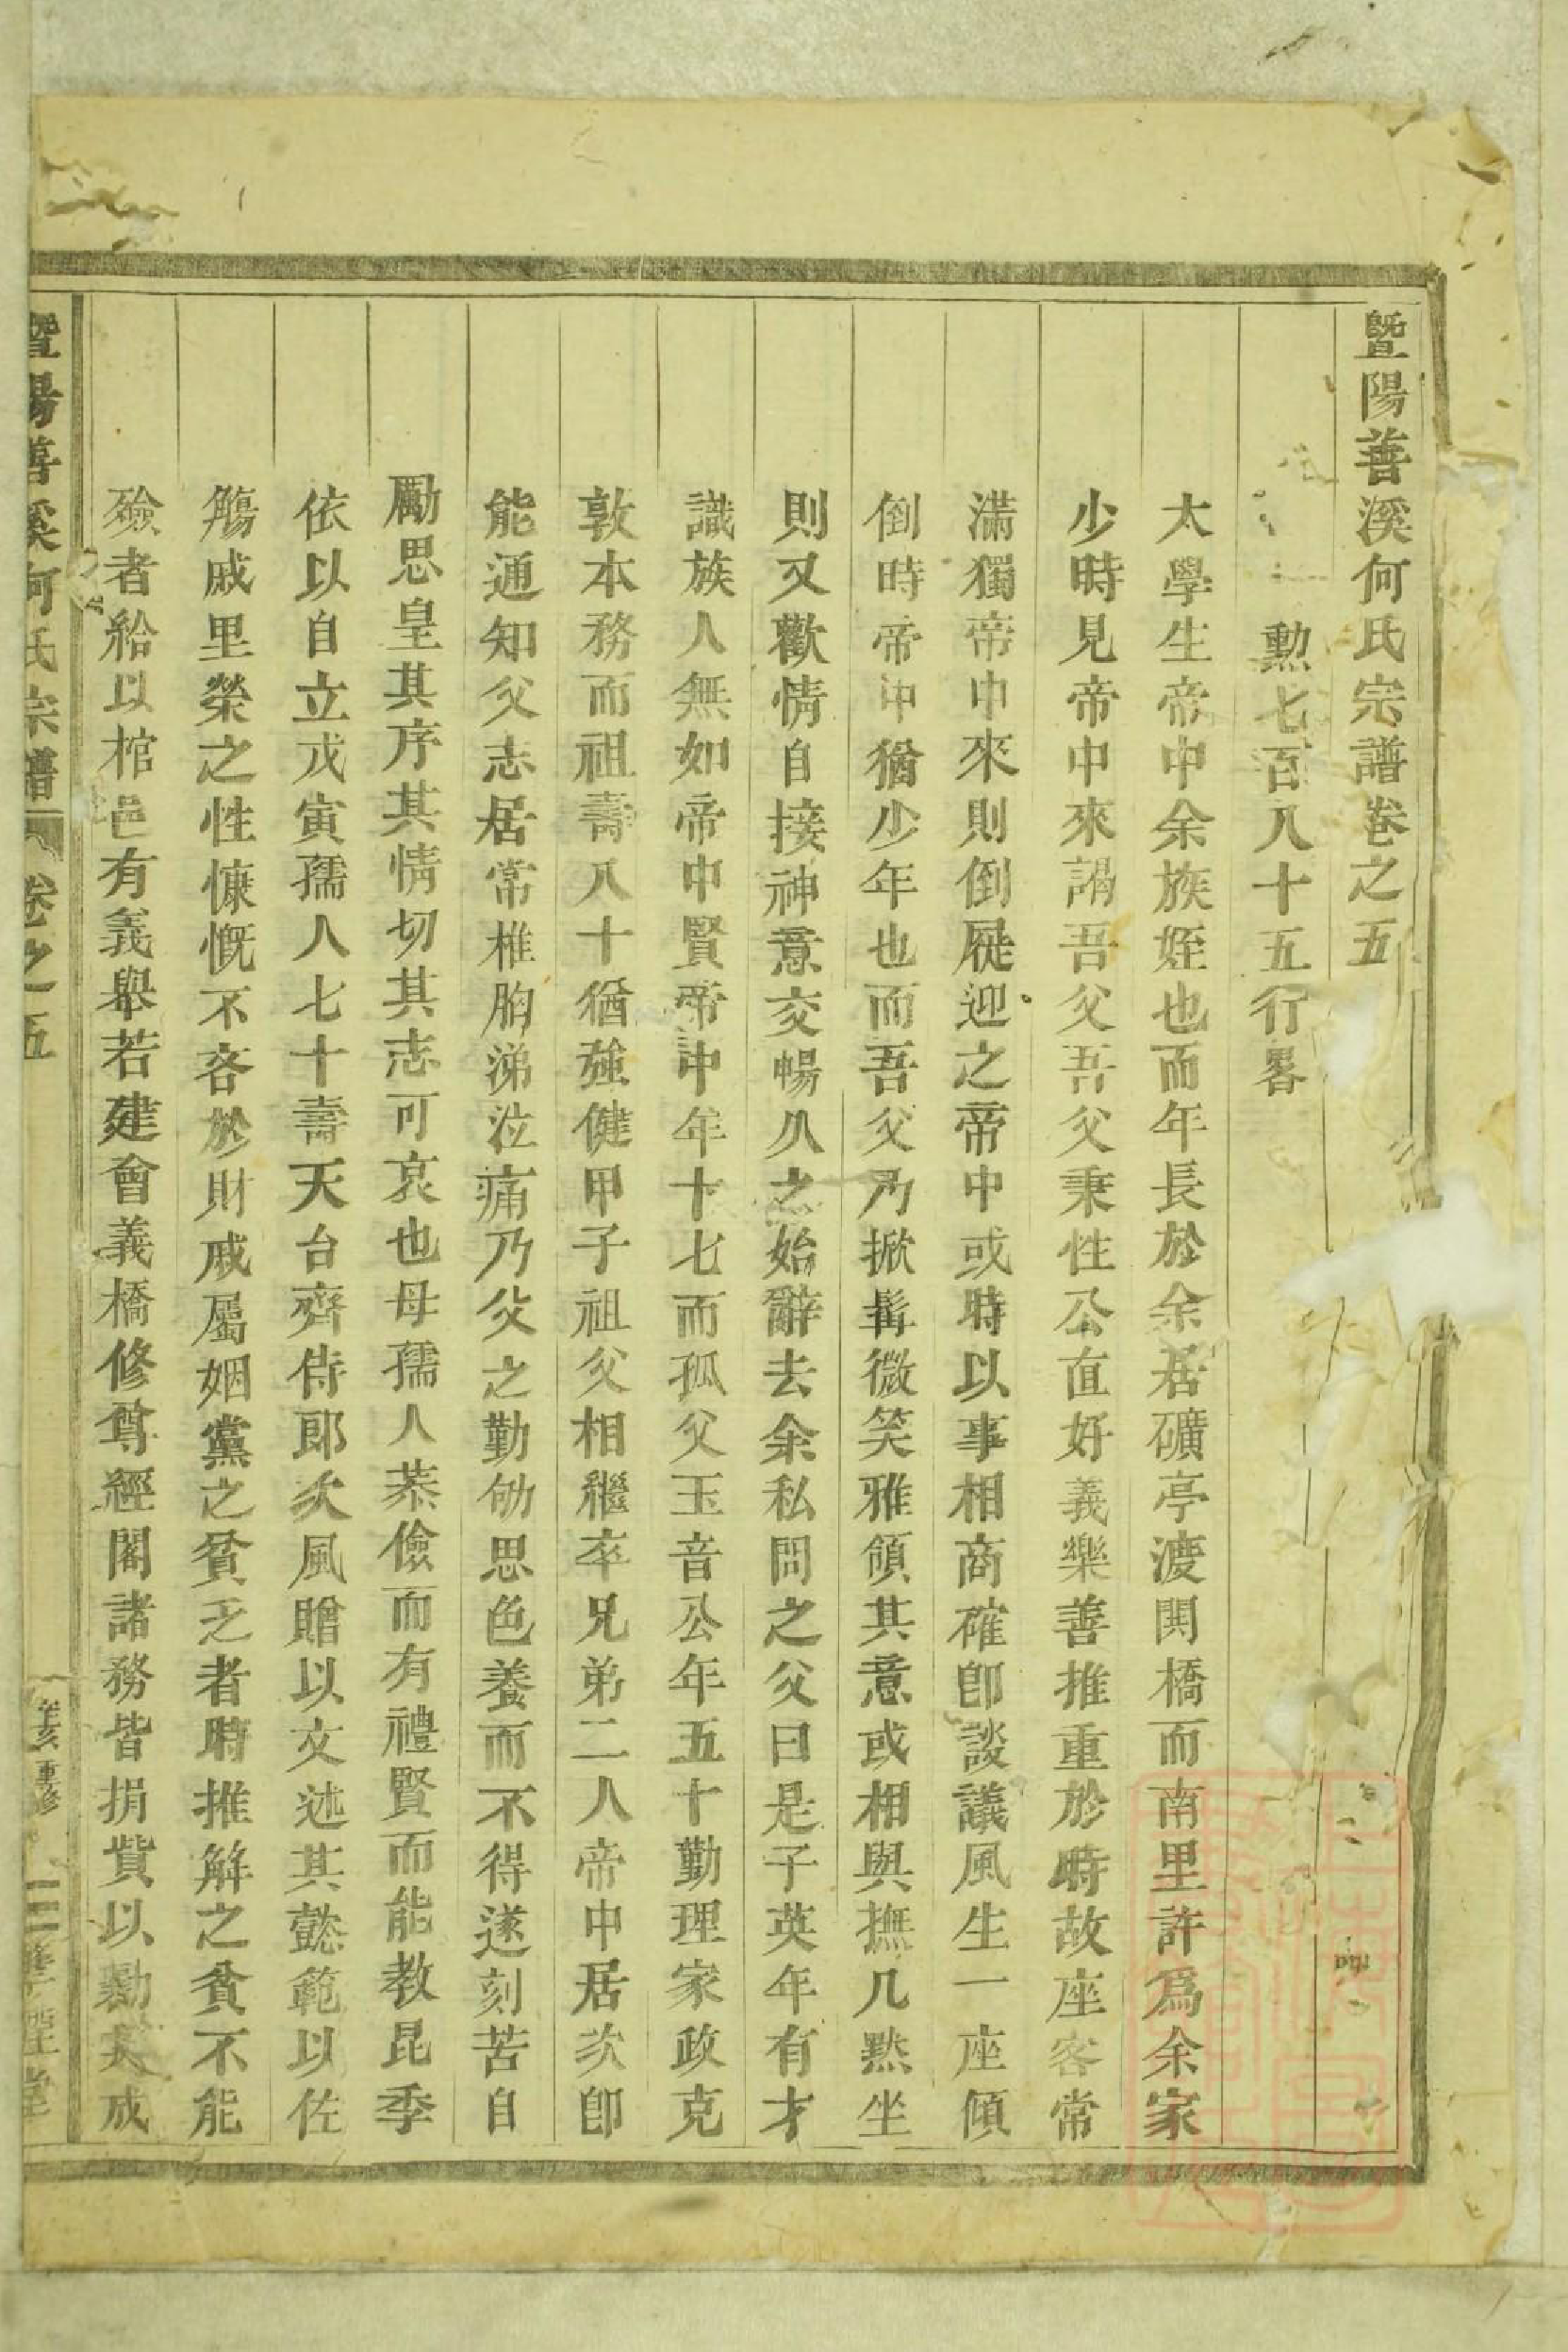 暨陽善溪何氏宗譜卷之五
勲七百八十五行畧
太學生帝中余族姪也而年長於余居礦亭渡閧橋而南里許爲余家
少時見帝中來謁吾父吾父秉性公直好義樂善推重於時故座客常
滿獨帝中來則倒屣迎之帝中或時以事相商確卽談議風生一座傾
倒時帝中猶少年也而吾父乃掀髯微笑雅頷其意或相與撫几㸃坐
則又歡情自接神意交暢久之始辭去余私問之父曰是子英年有才
識族人無如帝中賢帝中年十七而孤父玉音公年五十勤理家政克
敦本務而祖壽八十猶强健甲子祖父相繼卒兄弟二人帝中居次卽
能通知父志居常椎胸涕泣痛乃父之勤劬思色養而不得遂刻苦自
勵思皇其序其情切其志可哀也母孺人恭儉而有禮賢而能教昆季
依以自立戊寅孺人七十壽天台齊侍郎次風贈以文述其懿範以佐
觴戚里榮之性慷慨不吝於財戚屬姻黨之貧乏者時推解之貧不能
殮者給以棺邑有義舉若建會義橋修尊經閣諸務皆捐貲以勷其成
暨陽善溪何氏宗譜 卷之五 重修